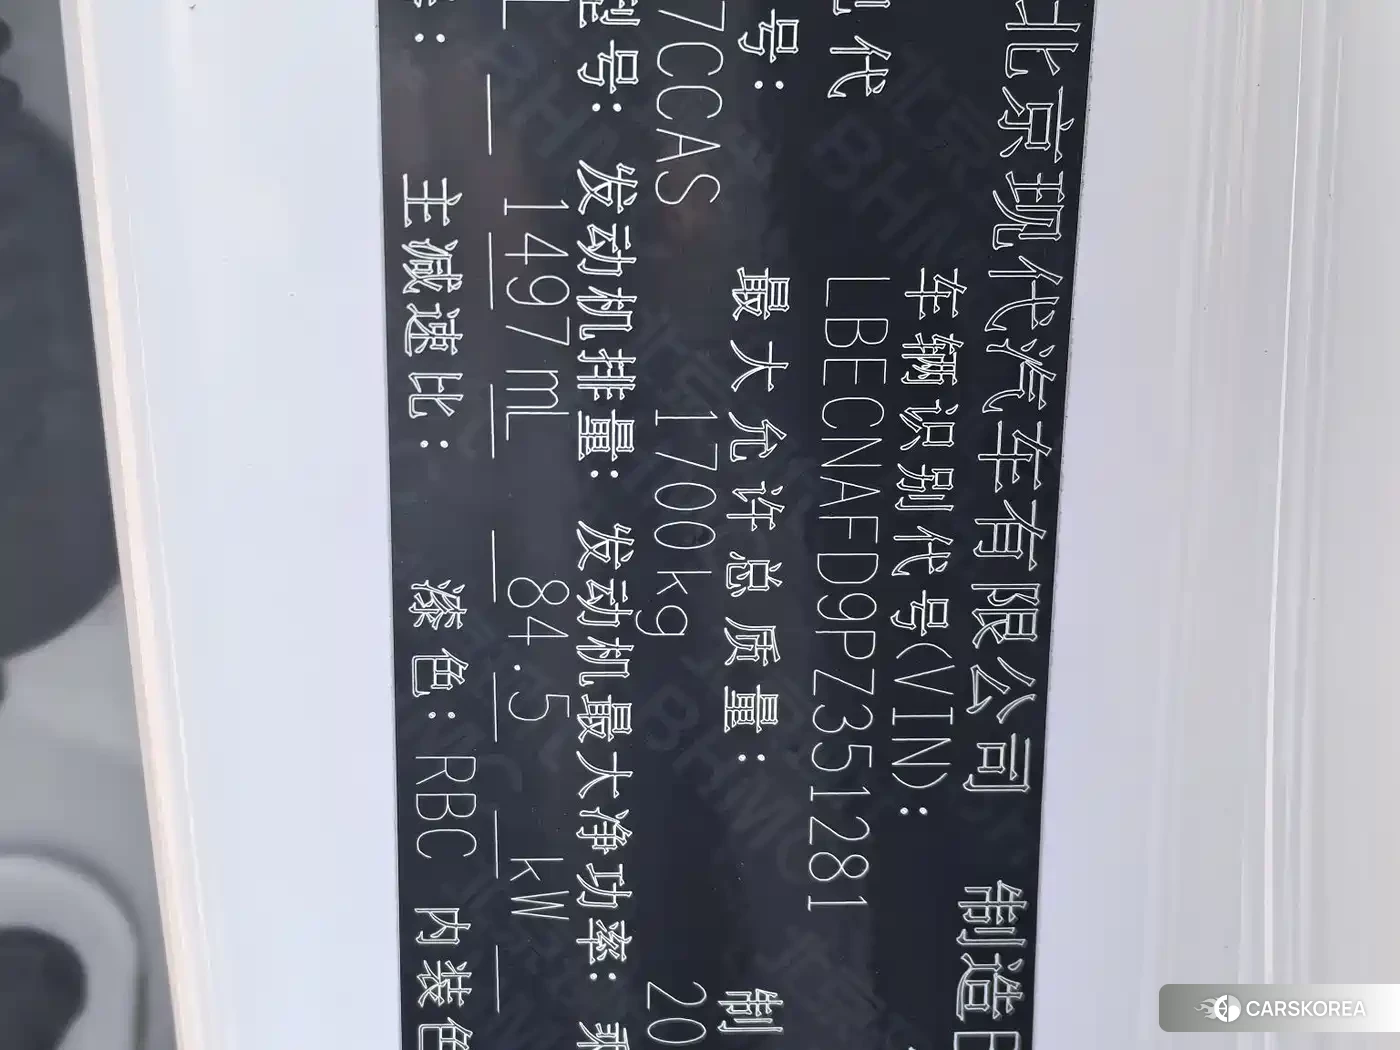 北京现代汽车有限公司 制造
车辆识别代号(VIN):
代 LBECNAFD9PZ351281
号: 最大允许总质量: 制
7CCAS 1700kg 20
型号: 发动机排量: 发动机最大净功率: 乘
L 1497mL 84.5 kW
主减速比: 漆色: RBC 内装色
CARSKOREA